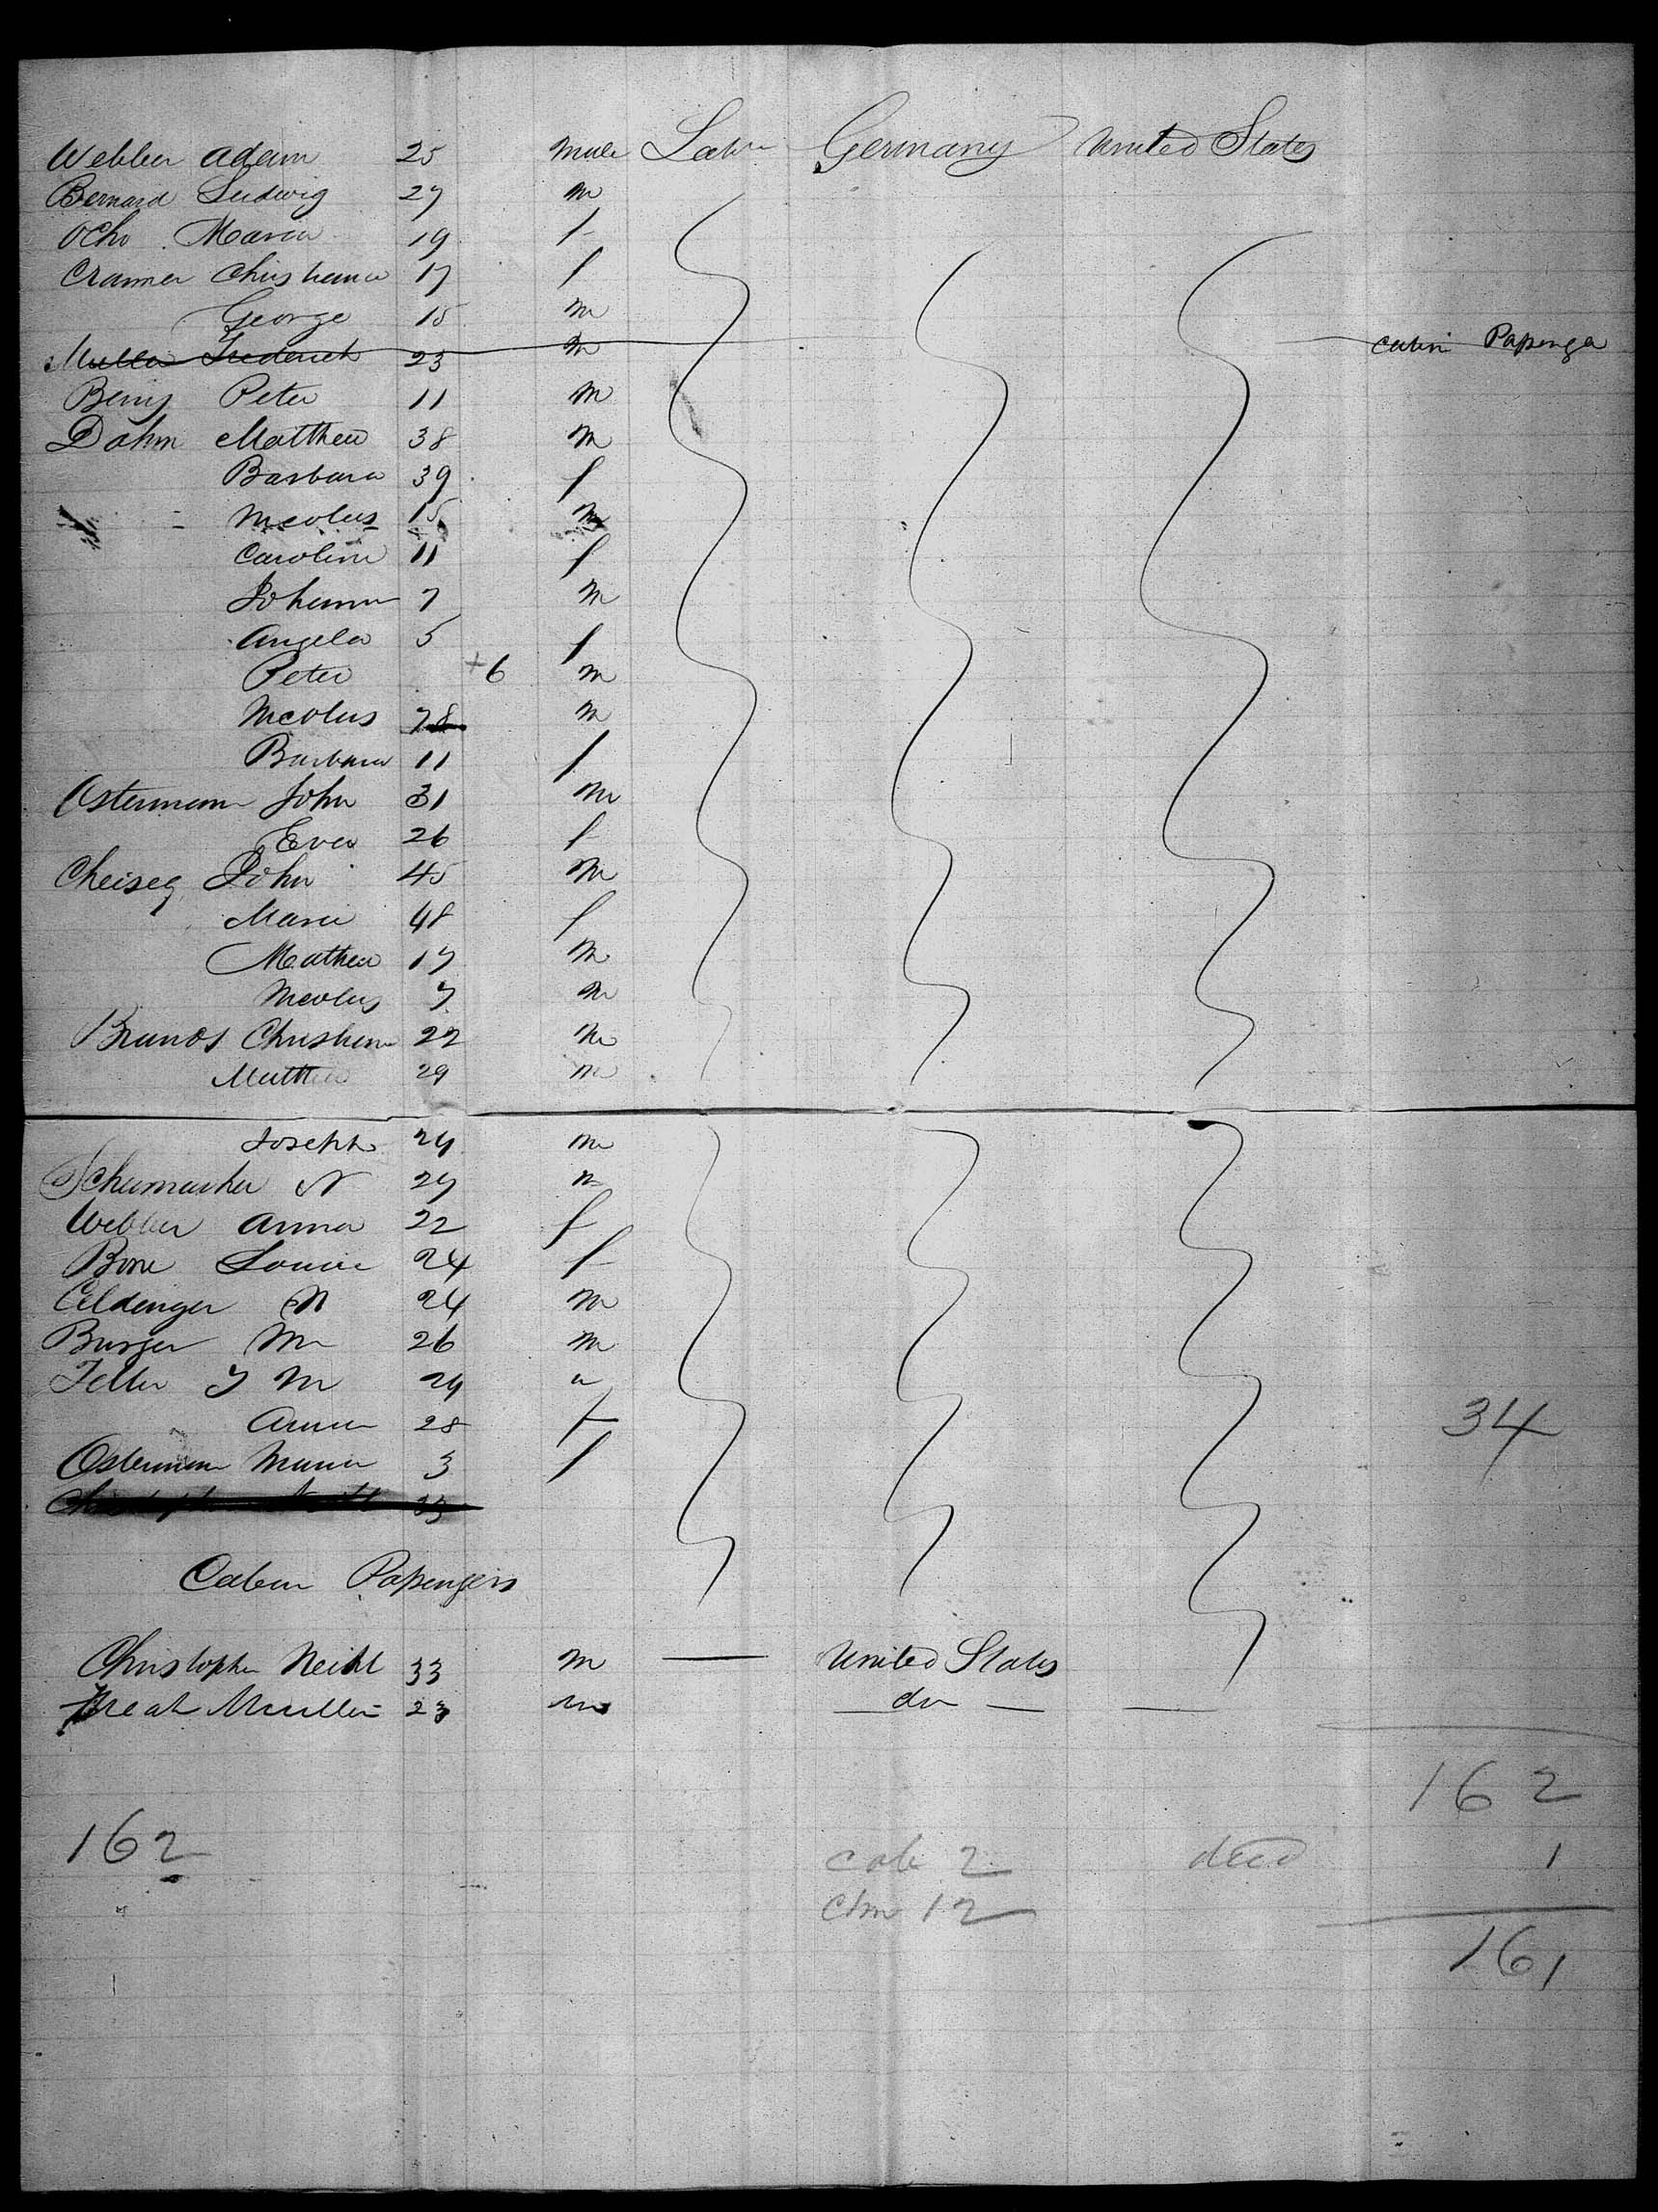 Webber Adam 25 Male Labr Germany United States
Bernard Ludwig 27 m
Ocho Maria 19 f
Cramer Christiana 17 f
George 15 m
Muller Frederick 23 m Cabin Passenger
Benij Peter 11 m
Dahm Matthew 38 m
Barbara 39 f
Nicolus 15 m
Caroline 11 f
Johann 7 m
Angela 5 f
Peter +6 m
Nicolus 78 m
Barbara 11 f
Ostermann John 31 m
Eva 26 f
Cheiseq John 45 m
Marie 48 f
Mathew 17 m
Nicolus 7 m
Brunds Christian 22 m
Matthew 29 m
Joseph 24 m
Schumacher N 27 m
Webber Anna 22 f
Bone Louise 24 f
Eldenger N 24 m
Burger M 26 m
Feller J M 24 m
Anna 28 f 34
Ostermann Maria 3 f
33
Cabin Passengers
Christopher Neihl 33 m — United States
Fred Muller 23 m — do — —
162
162 cab 2 decd 1
Chn 12
161